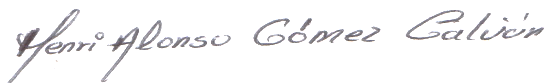 Henri Alonso Gómez Galvón